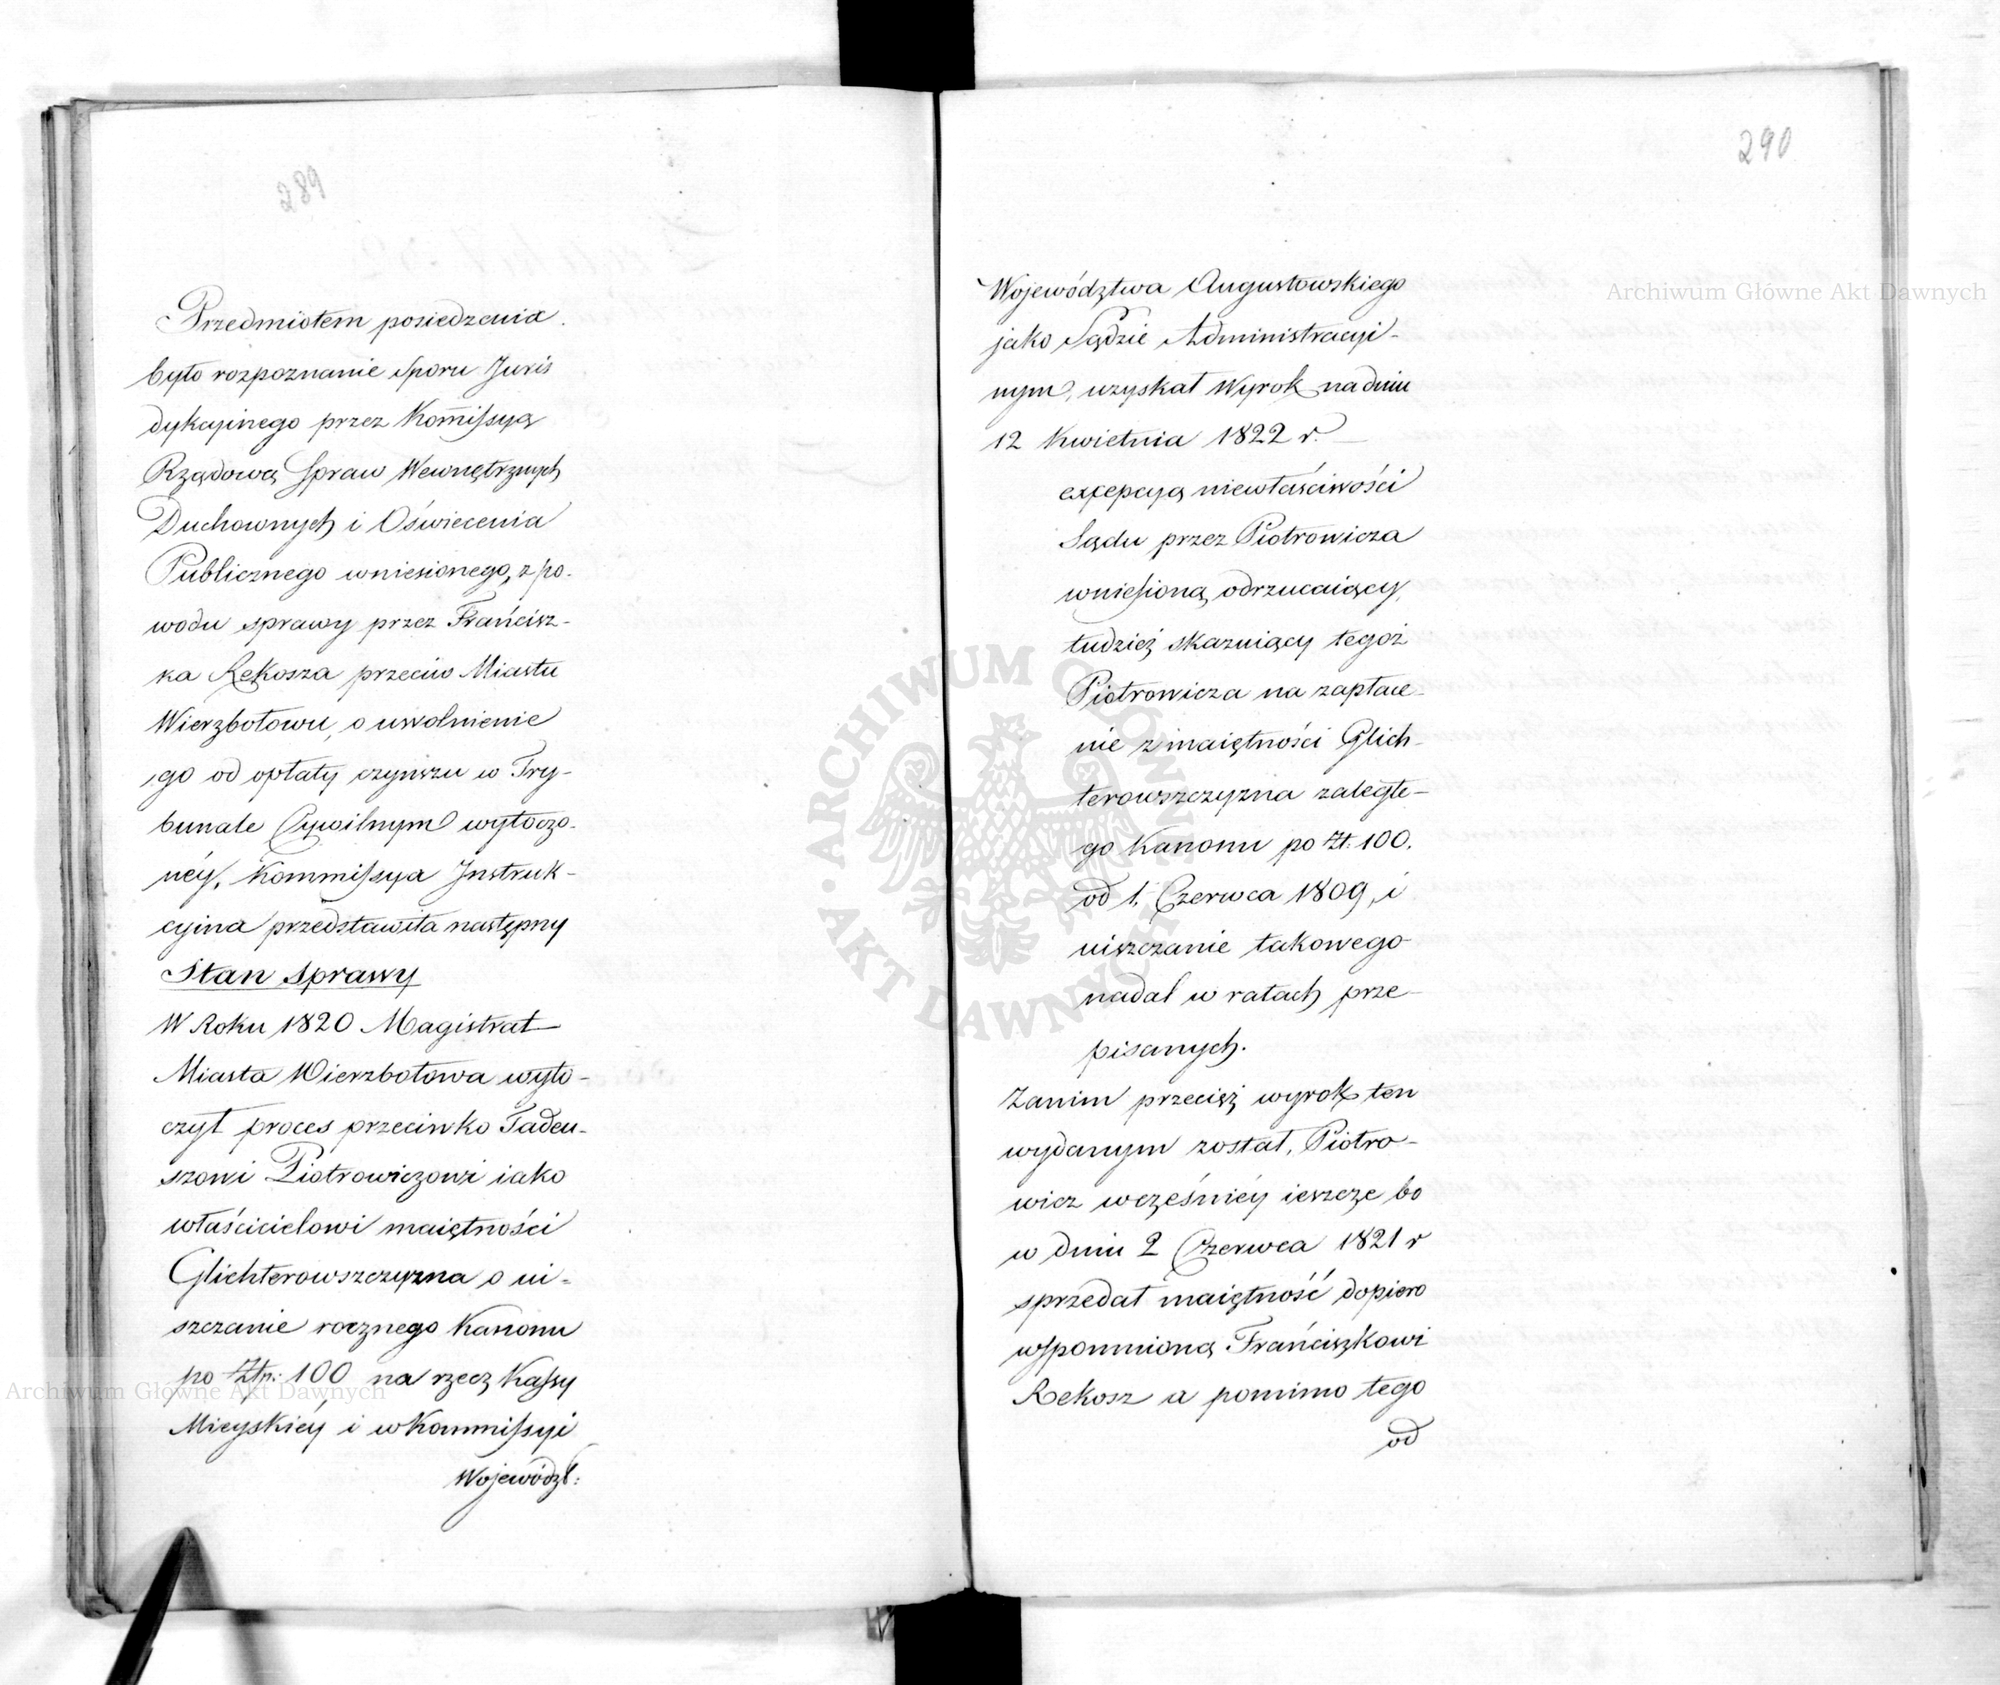 289
Przedmiotem posiedzenia
było rozpoznanie sporu Juris
dykcyinego przez Kom̅issyą
Rządową Spraw Wewnętrznych
Duchownych i Oświecenia
Publicznego wniesionego, z po-
wodu sprawy przez Frańcisz-
ka Rekosza przeciw Miastu
Wierzbołowu, o uwolnienie
go od opłaty czynszu w Try-
bunale Cywilnym wytoczo-
néy, Kommissya Instruk-
cyina przedstawiła następny
Stan sprawy
W Roku 1820 Magistrat
Miasta Wierzbołowa wyto-
czył proces przeciwko Tadeu-
szowi Piotrowiczowi iako
właścicielowi maiętności
Glichterowszczyzna o ui-
szczanie rocznego Kanonu
po Złp: 100 na rzecz Kassy
Mieyskiéy i w Kommissyi
Województ:
290
Województwa Augustowskiego
jako Sądzie Administracyi-
nym, uzyskał Wyrok na dniu
12 Kwietnia 1822 r.
excepcyą niewłaściwości
Sądu przez Piotrowicza
wniesioną odrzucaiący,
tudzież skazuiący tegoż
Piotrowicza na zapłace-
nie z maiętności Glich-
terowszczyzna zaległe-
go Kanonu po Zł. 100.
od 1. Czerwca 1809, i
uiszczanie takowego
nadal w ratach prze-
pisanych.
Zanim przecież wyrok ten
wydanym został, Piotro-
wicz wcześniéy ieszcze bo
w dniu 2 Czerwca 1821 r
sprzedał maiętność dopiero
wspomnioną Frańciszkowi
Rekosz a pomimo tego
od
Archiwum Główne Akt Dawnych
Archiwum Główne Akt Dawnych
ARCHIWUM GŁÓWNE AKT DAWNYCH